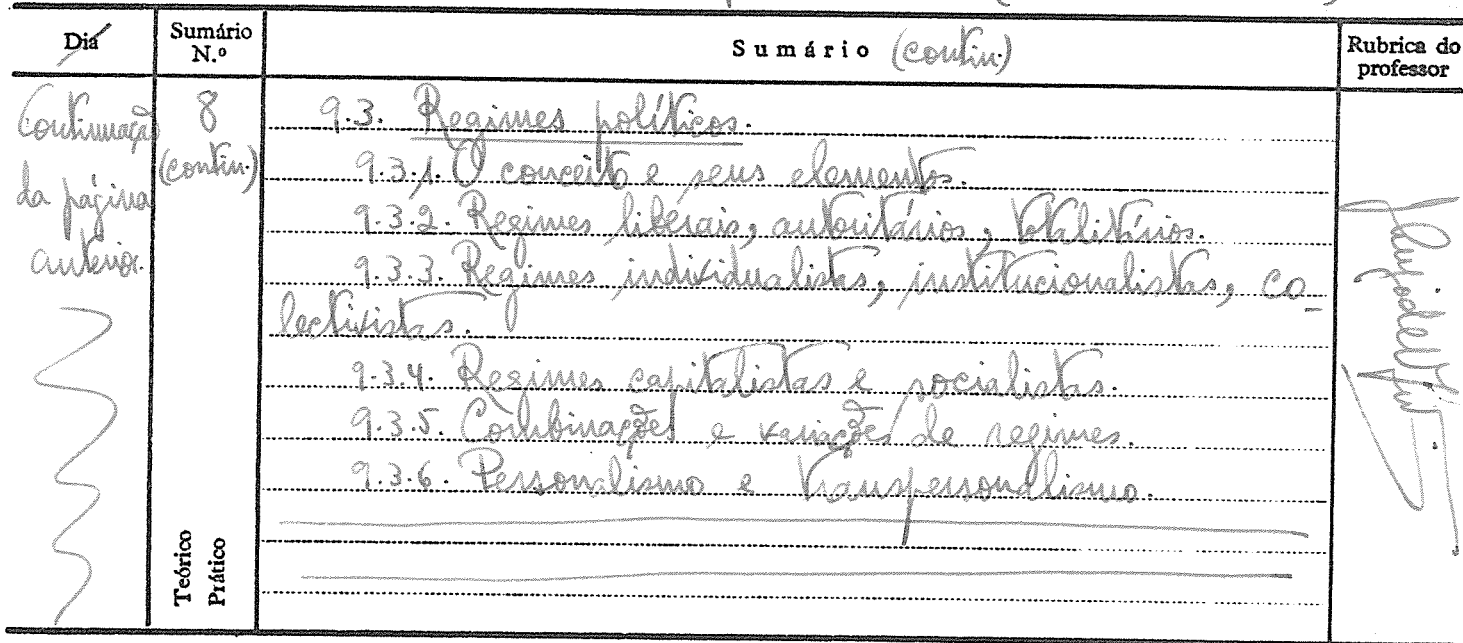 Dia
Sumário N.º
Sumário (contin.)
Rubrica do professor
Continuação da página anterior.
8 (contin.)
9.3. Regimes políticos.
9.3.1. O conceito e seus elementos.
9.3.2. Regimes liberais, autoritários, totalitários.
9.3.3. Regimes individualistas, institucionalistas, co-
lectivistas.
9.3.4. Regimes capitalistas e socialistas.
9.3.5. Combinações e variações de regimes.
9.3.6. Personalismo e transpersonalismo.
Teórico
Prático